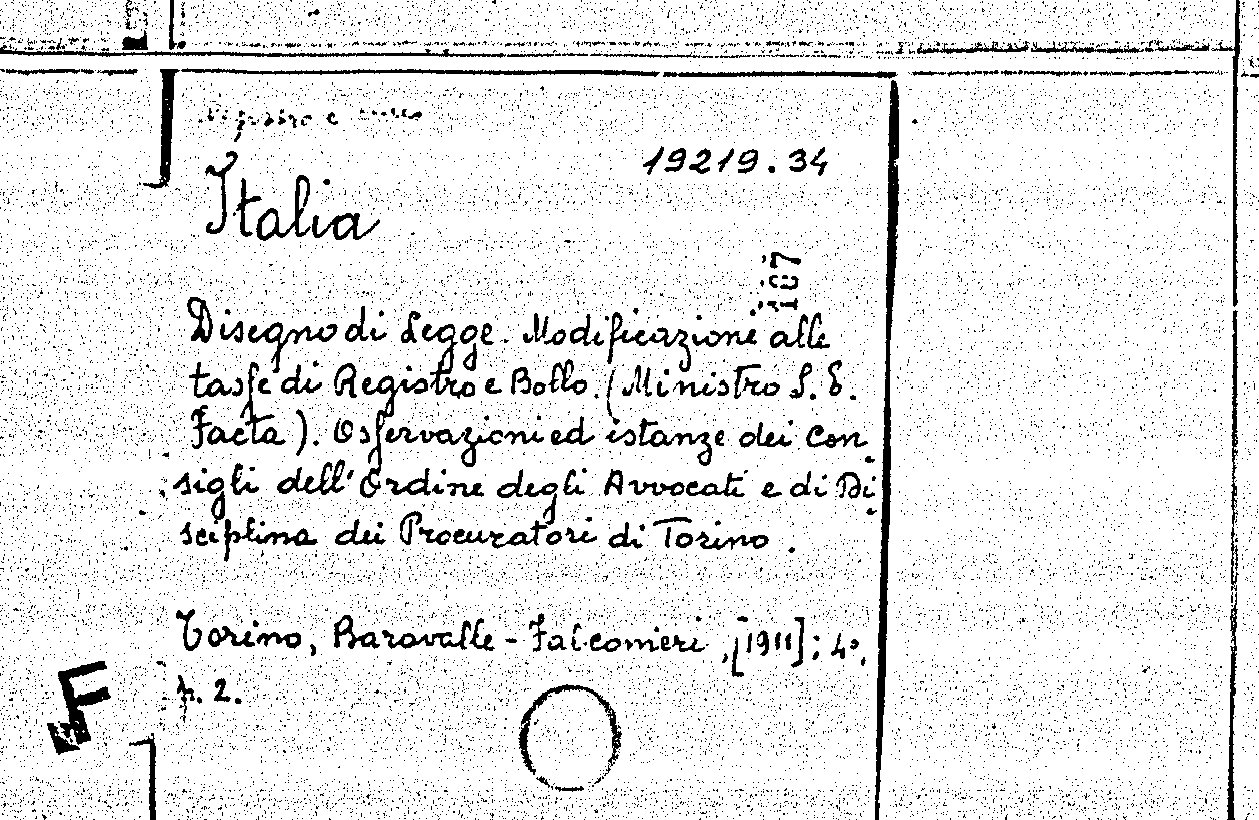 Registro e
19219.34
Italia
107
Disegno di Legge. Modificazione alle
tasse di Registro e Bollo. (Ministro S. E.
Facta). Osservazioni ed istanze dei Con
sigli dell'Ordine degli Avvocati e di Di
sciplina dei Procuratori di Torino.
Torino, Baravalle-Falconieri, [1911]; 4°,
p. 2.
F